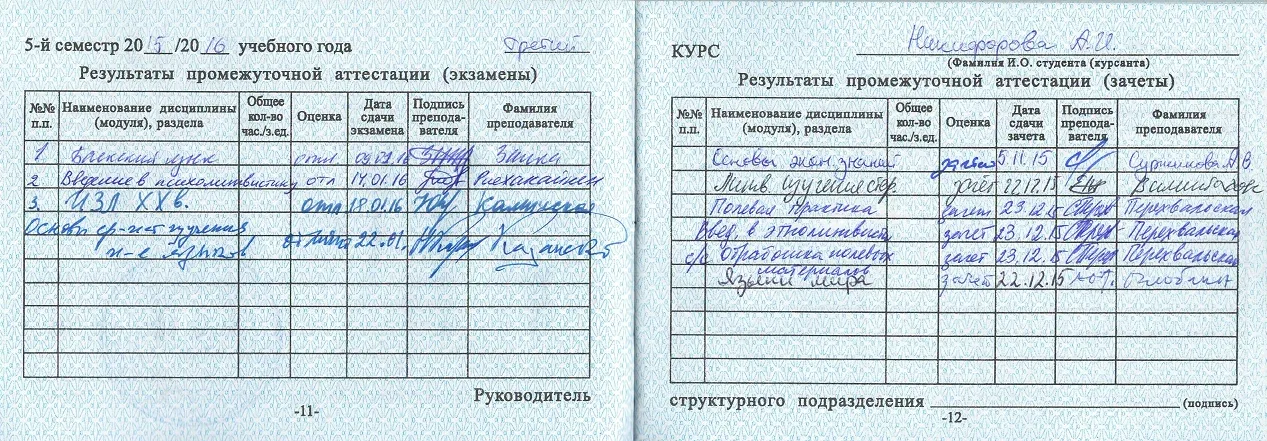 5-й семестр 2015/2016 учебного года третий
Результаты промежуточной аттестации (экзамены)
№№ п.п. Наименование дисциплины (модуля), раздела Общее кол-во час./з.ед. Оценка Дата сдачи экзамена Подпись преподавателя Фамилия преподавателя
1. язык отл. 09.01.16 Заика
2 Введение в психолингвистику отл 14.01.16 Риехакайнен
3. ИЗЛ XX в. отл 18.01.16
Основы ср-ист изучения
и-е языков. отлично 22.01. Казанский
Руководитель
-11-
КУРС Никифорова А.И.
(Фамилия И.О. студента (курсанта)
Результаты промежуточной аттестации (зачеты)
№№ п.п. Наименование дисциплины (модуля), раздела Общее кол-во час./з.ед. Оценка Дата сдачи зачета Подпись преподавателя Фамилия преподавателя
Основы экон. знаний зачет 5.11.15
Лингв. изучение зачёт 22.12.15
Полевая практика зачет 23.12.15 Перехвальская
Введ. в этнолингвист зачет 23.12.15 Перехвальская
с/с Обработка полевых материалов зачет 23.12.15 Перехвальская
Языки мира зачет 22.12.15
структурного подразделения (подпись)
-12-